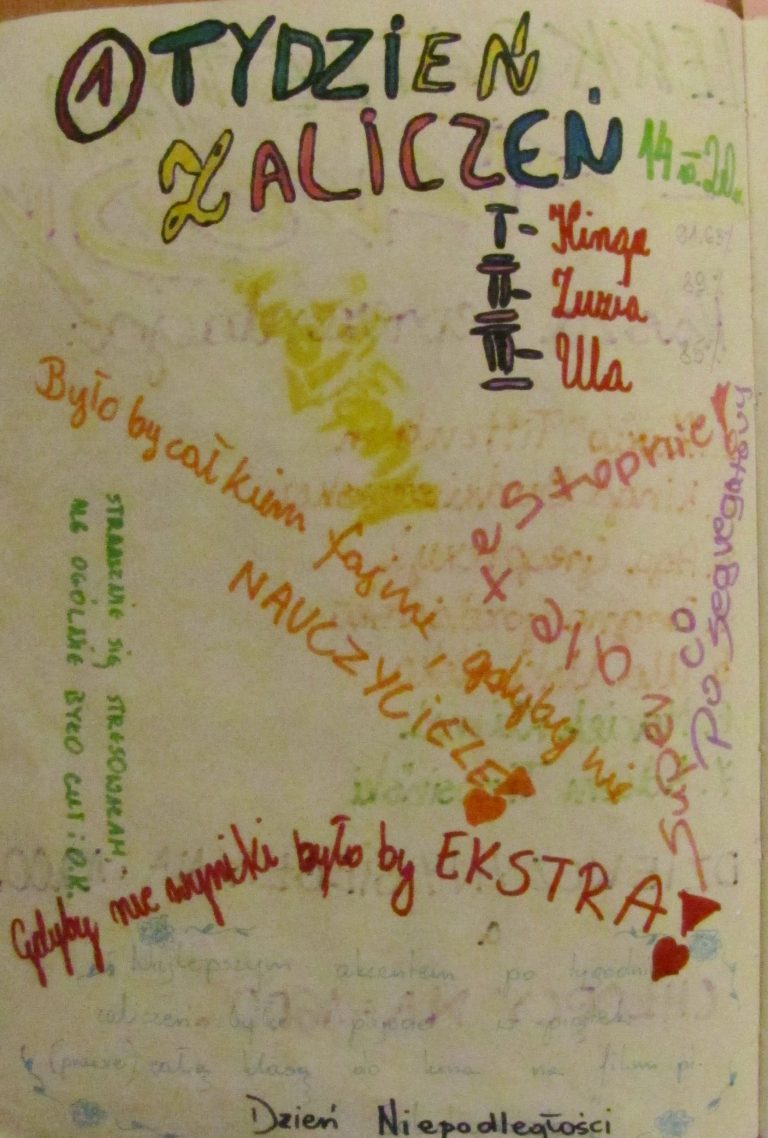 1 TYDZIEŃ
ZALICZEŃ 14 20
I - Kinga
II - Zuzia
III - Ula
Było by całkiem fajnie, gdyby nie
NAUCZYCIELE
super ale te stopnie!
Po co segregatowy
STRASZNIE SIĘ STRESOWAŁAM,
ALE OGÓLNIE BYŁO CUŚ i O.K.
Gdyby nie wyniki było by EKSTRA
Najlepszym akcentem po tygodniu
zaliczeń było pójście w piątek
(prawie) całą klasą do kina na film pt.
Dzień Niepodległości